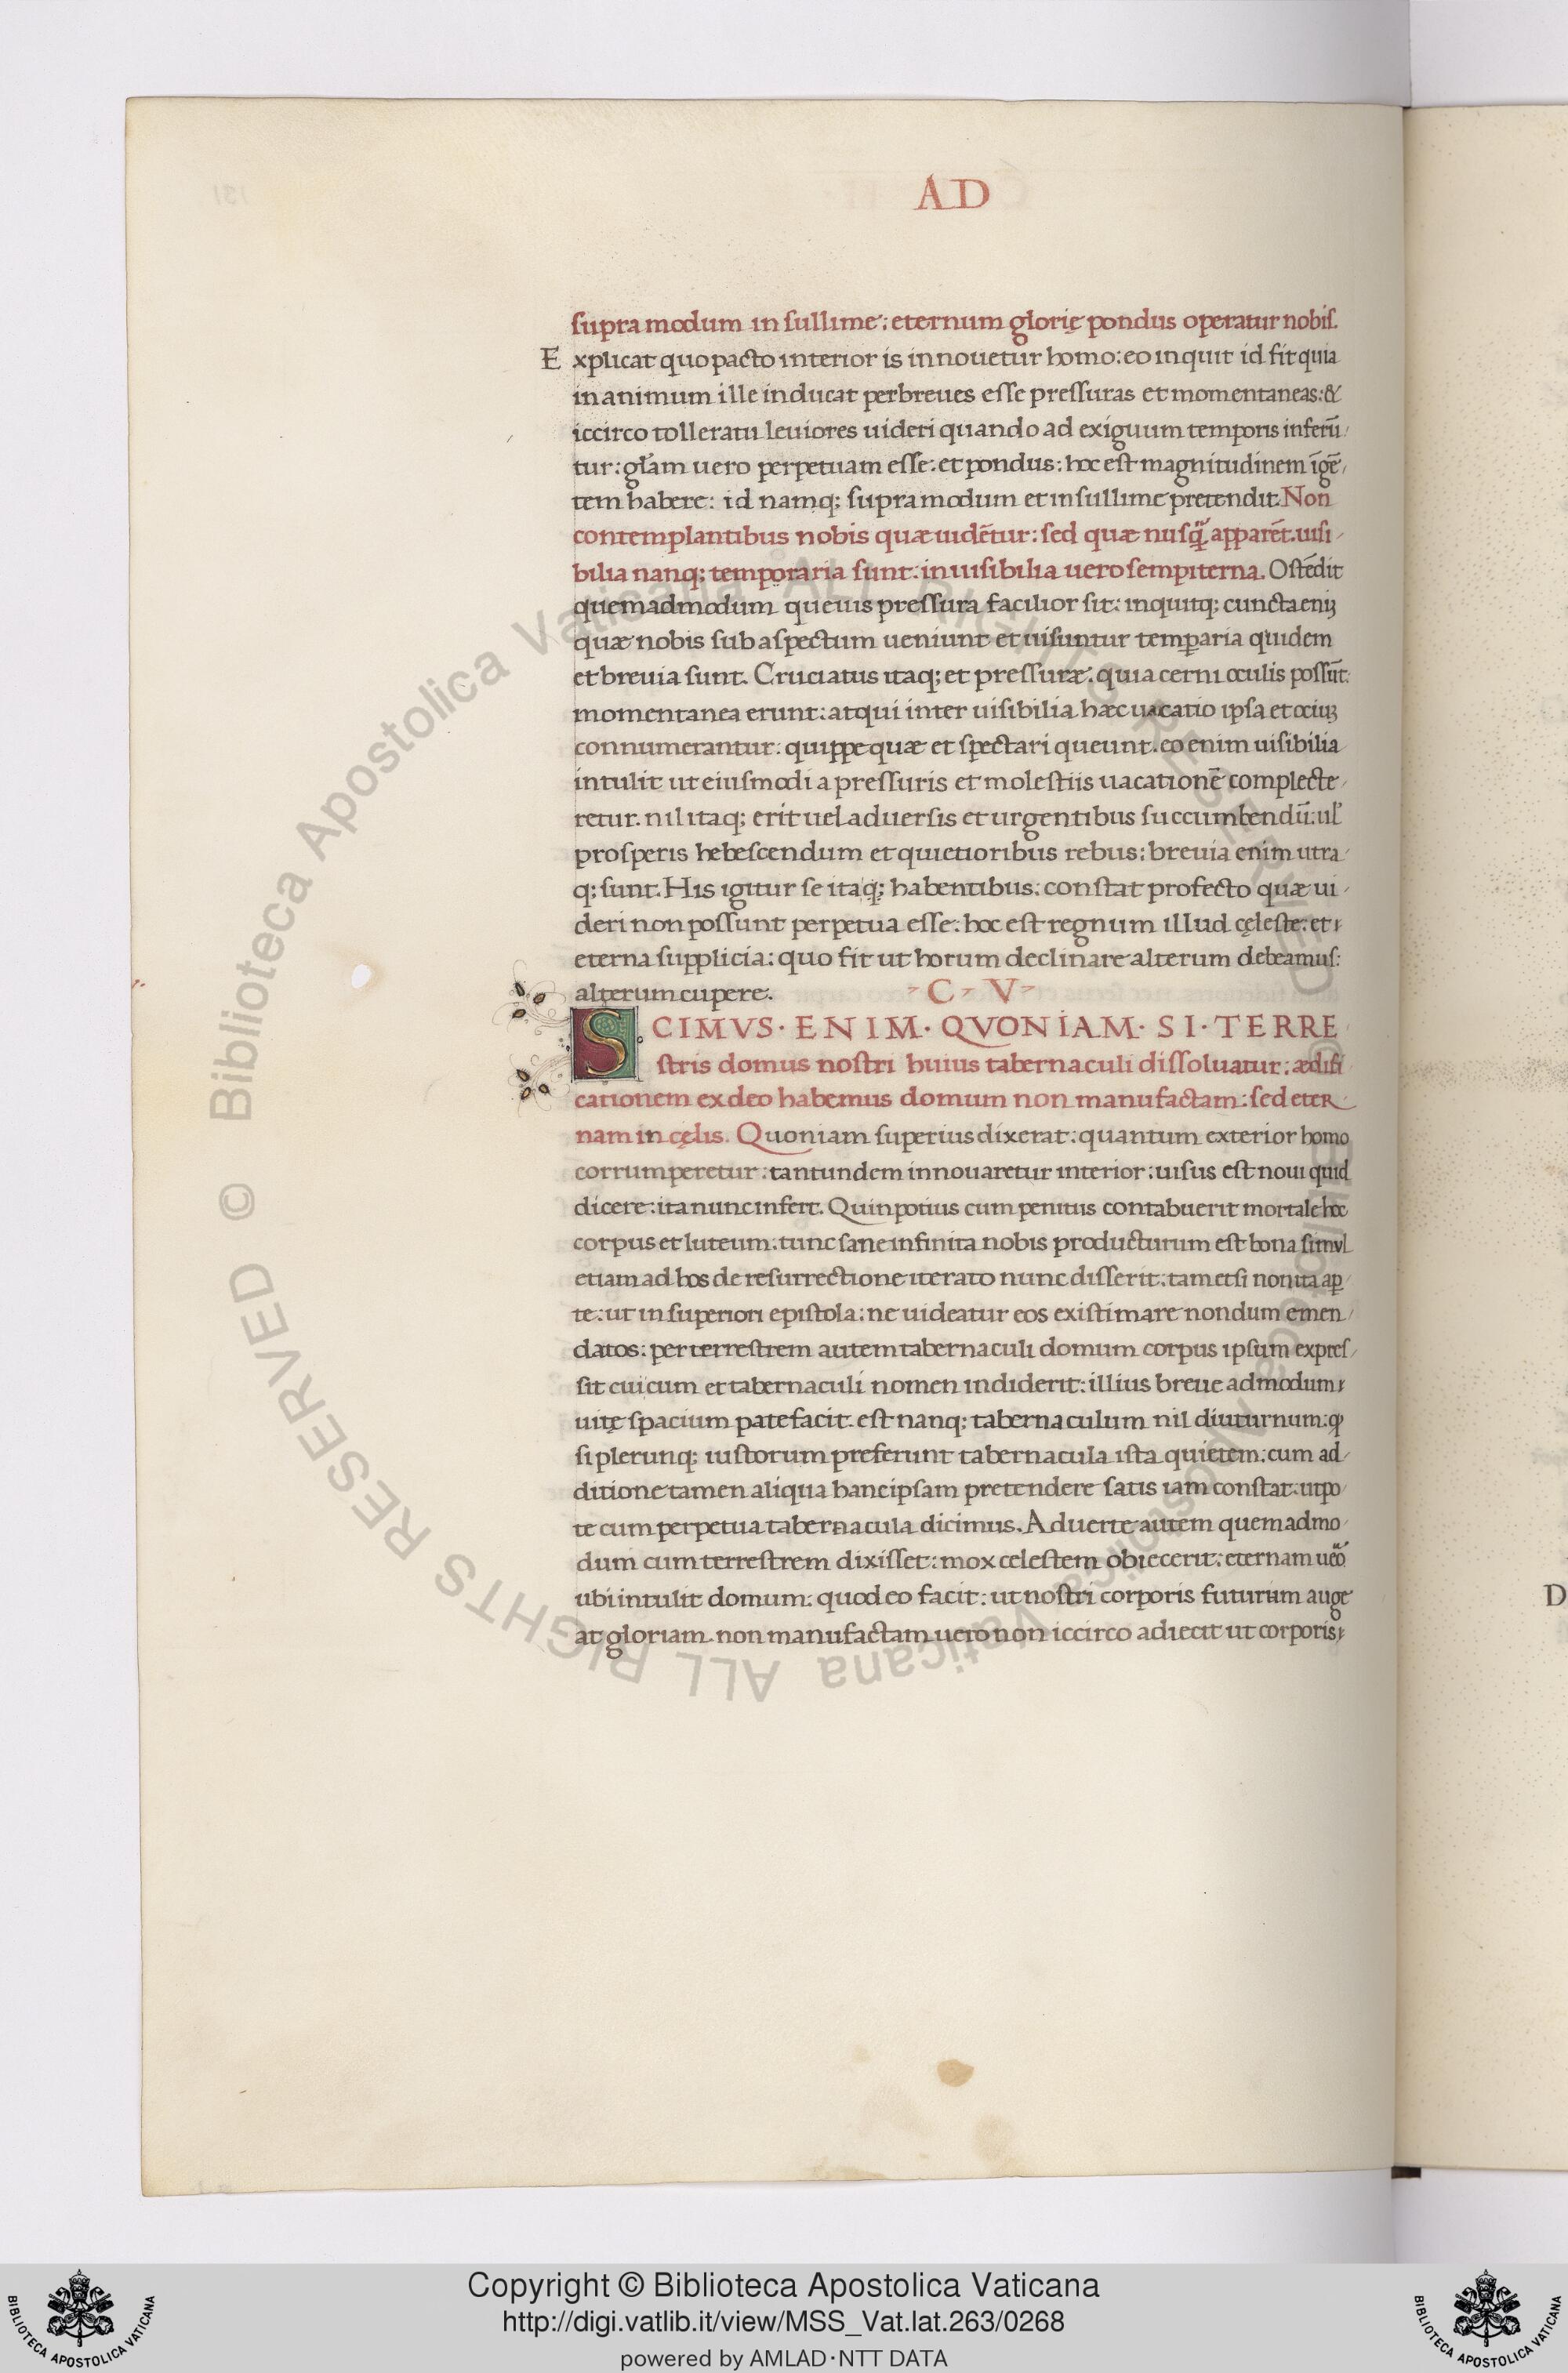 AD
supra modum in sullime: eternum glorię pondus operatur nobis.
Explicat quo pacto interior is innouetur homo: eo inquit id fit quia
in animum ille inducat perbreues esse pressuras et momentaneas: &
iccirco tolleratu leuiores uideri quando ad exiguum temporis inferũ
tur: glãm uero perpetuam esse: et pondus: hoc est magnitudinem ĩgẽ
tem habere: id namq; supra modum et in sullime pretendit. Non
contemplantibus nobis quæ uidẽtur: sed quæ nusq̃ apparẽt. uisi
bilia nanq; temporaria sunt: inuisibilia uero sempiterna. Ostẽdit
quemadmodum queuis pressura facilior sit: inquitq; cuncta eniʒ
quæ nobis sub aspectum ueniunt et uisuntur temꝑaria quidem
et breuia sunt. Cruciatus itaq; et pressuræ: quia cerni oculis possũt:
momentanea erunt: atqui inter uisibilia hæc uacatio ipsa et ociuʒ
connumerantur: quippe quæ et spectari queunt. eo enim uisibilia
intulit ut eiusmodi a pressuris et molestiis uacationẽ complecte
retur. nil itaq; erit uel aduersis et urgentibus succumbendũ: ul'
prosperis hebescendum et quietioribus rebus: breuia enim utra
q; sunt. His igitur se itaq; habentibus: constat profecto quæ ui
deri non possunt perpetua esse: hoc est regnum illud cęleste: et
eterna supplicia: quo fit ut horum declinare alterum debeamus:
alterum cupere.
C V
SCIMVS · ENIM · QVONIAM · SI · TERRE
stris domus nostri huius tabernaculi dissoluatur: ædifi
cationem ex deo habemus domum non manufactam: sed eter
nam in cęlis. Quoniam superius dixerat: quantum exterior homo
corrumperetur: tantundem innouaretur interior: uisus est noui quid
dicere: ita nunc infert. Quin potius cum penitus contabuerit mortale hoc
corpus et luteum: tunc sane infinita nobis producturum est bona simul
etiam ad hos de resurrectione iterato nunc disserit: tametsi non ita aꝑ
te: ut in superiori epistola: ne uideatur eos existimare nondum emen
datos: per terrestrem autem tabernaculi domum corpus ipsum expres
sit cui cum et tabernaculi nomen indiderit: illius breue admodum
uitę spacium patefacit. est nanq; tabernaculum nil diuturnum: ꝙ
si plerunq; iustorum preferunt tabernacula ista quietem: cum ad
ditione tamen aliqua hanc ipsam pretendere satis iam constat: utpo
te cum perpetua tabernacula dicimus. Aduerte autem quemadmo
dum cum terrestrem dixisset: mox celestem obiecerit: eternam uẽo
ubi intulit domum: quod eo facit: ut nostri corporis futuram auge
at gloriam. non manufactam uero non iccirco adiecit ut corporis
D
Biblioteca Apostolica Vaticana ALL RIGHTS RESERVED ©
Biblioteca Apostolica Vaticana ALL RIGHTS RESERVED ©
Copyright © Biblioteca Apostolica Vaticana
http://digi.vatlib.it/view/MSS_Vat.lat.263/0268
powered by AMLAD·NTT DATA
BIBLIOTECA APOSTOLICA VATICANA
BIBLIOTECA APOSTOLICA VATICANA